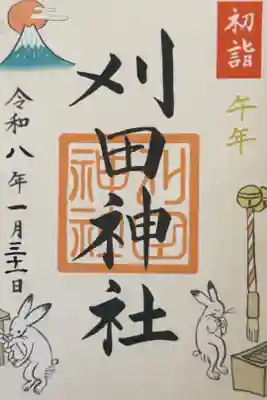 初詣
午年
刈田神社
刈田
神社
令和八年一月三十一日